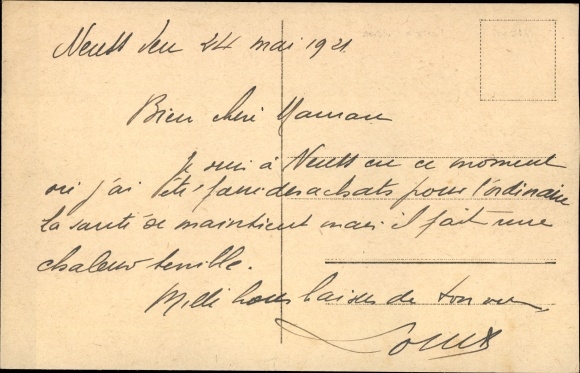 Neuss den 24 mai 1921
Bien chère Maman
Je suis à Neuss en ce moment
où j'ai été faire des achats pour l'ordinaire
La santé se maintient mais il fait une
chaleur terrible.
Mille bons baisers de ton
Louis